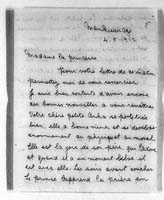 4. 5. 1912
Madame la princesse
Pour votre lettre de ce matin
permettez moi de vous remercier.
Je suis bien contente d'avoir encore
des bonnes nouvelles à vous remettre
Votre chère petite se porte très
bien, elle a bonne mine et se developpe
énormément au physique au moral.
Elle est la joie de son père, qui l'adore
et quand il a un moment libre il
est avec elle. Les soirs avant coucher
le prince apprend la prière